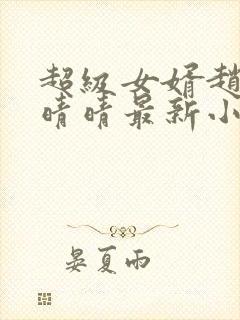 超級女婿趙
晴晴最新小
晏夏雨